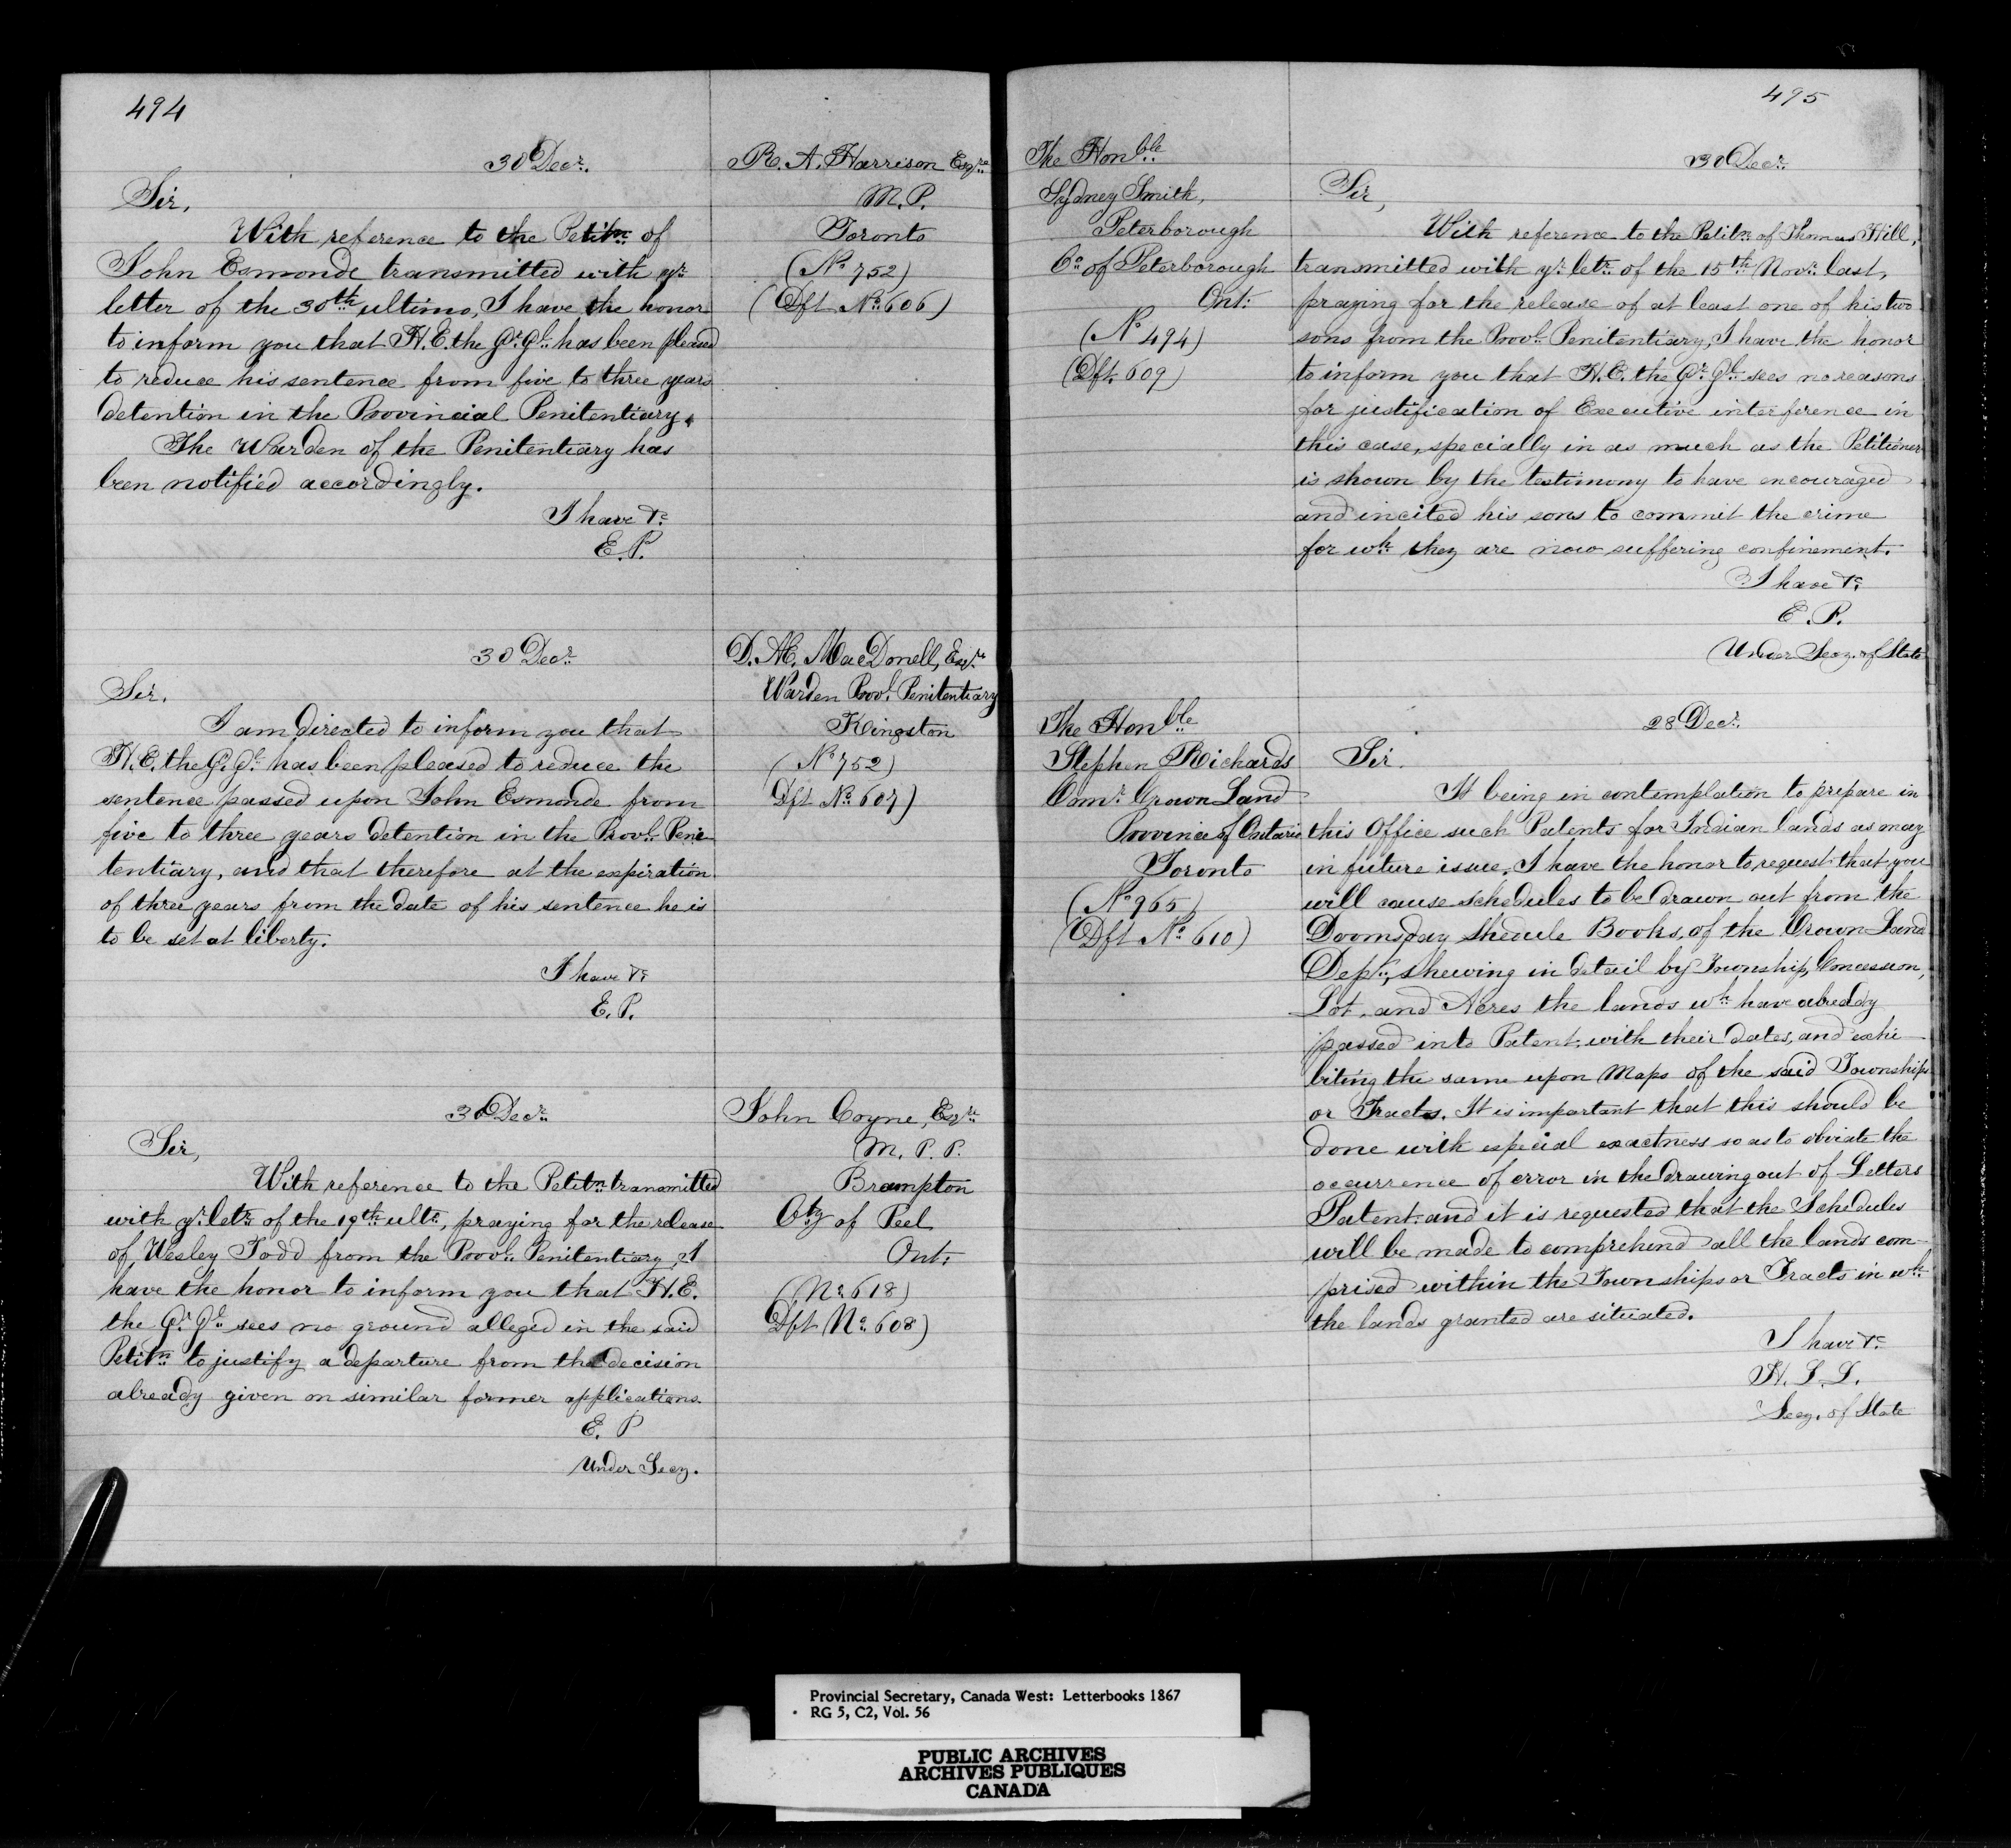 494
30 Decr.
Sir,
With reference to the Petitn. of
John Esmonde transmitted with yr.
letter of the 30th ultimo, I have the honor
to inform you that H.E. the Gr. Gl. has been pleased
to reduce his sentence from five to three years
detention in the Provincial Penitentiary.
The Warden of the Penitentiary has
been notified accordingly.
I have &c.
E. P.
R. A. Harrison Esqre.
M.P.
Toronto
(No. 752)
(Dft No. 606)
30 Decr.
Sir.
I am directed to inform you that
H.E. the G. Gl. has been pleased to reduce the
sentence passed upon John Esmonde from
five to three years detention in the Provl. Peni-
tentiary, and that therefore at the expiration
of three years from the date of his sentence he is
to be set at liberty.
I have &c.
E. P.
D. AE. MacDonell, Esqre.
Warden Provl. Penitentiary
Kingston
(No 752)
Dft No. 607)
30 Decr.
Sir,
With reference to the Petitn. transmitted
with yr. letr. of the 19th ulto., praying for the release
of Wesley Todd from the Provl. Penitentiary, I
have the honor to inform you that H.E.
the Gr. Gl. sees no ground alleged in the said
Petitn. to justify a departure from the decision
already given on similar former applications.
E. P
Under Secy.
John Coyne, Esqre.
M. P. P.
Brampton
Cty of Peel
Ont:
(No. 618)
Dft No. 608)
495
The Honble.
Sydney Smith,
Peterborough
Co. of Peterborough
Ont:
(No 494)
(Dft. 609)
30 Decr.
Sir,
With reference to the Petitn. of Thomas Hill,
transmitted with yr. letr. of the 15th Novr. last,
praying for the release of at least one of his two
sons from the Provl. Penitentiary, I have the honor
to inform you that H.E. the Gr. Gl. sees no reasons
for justification of Executive interference in
this case, specially in as much as the Petitioner
is shown by the testimony to have encouraged
and incited his sons to commit the crime
for wh. they are now suffering confinement.
I have &c.
E. P.
Under Secy. of State
The Honble.
Stephen Richards
Comr. Crown Land
Province of Ontario
Toronto
(No 965)
(Dft No. 610)
28 Decr.
Sir.
It being in contemplation to prepare in
this Office such Patents for Indian lands as may
in future issue, I have the honor to request that you
will cause schedules to be drawn out from the
Doomsday Shedule Books, of the Crown Land
Dept., shewing in detail by Township, Concession,
Lot, and Acres the lands wh. have already
passed into Patent, with their dates, and exhi
biting the same upon Maps of the said Townships
or Tracts. It is important that this should be
done with especial exactness so as to obviate the
occurrence of error in the drawing out of Letters
Patent, and it is requested that the Schedules
will be made to comprehend all the lands com-
prised within the Townships or Tracts in wh.
the lands granted are situated.
I have &c.
H. L. L.
Secy. of State
Provincial Secretary, Canada West: Letterbooks 1867
RG 5, C2, Vol. 56
PUBLIC ARCHIVES
ARCHIVES PUBLIQUES
CANADA